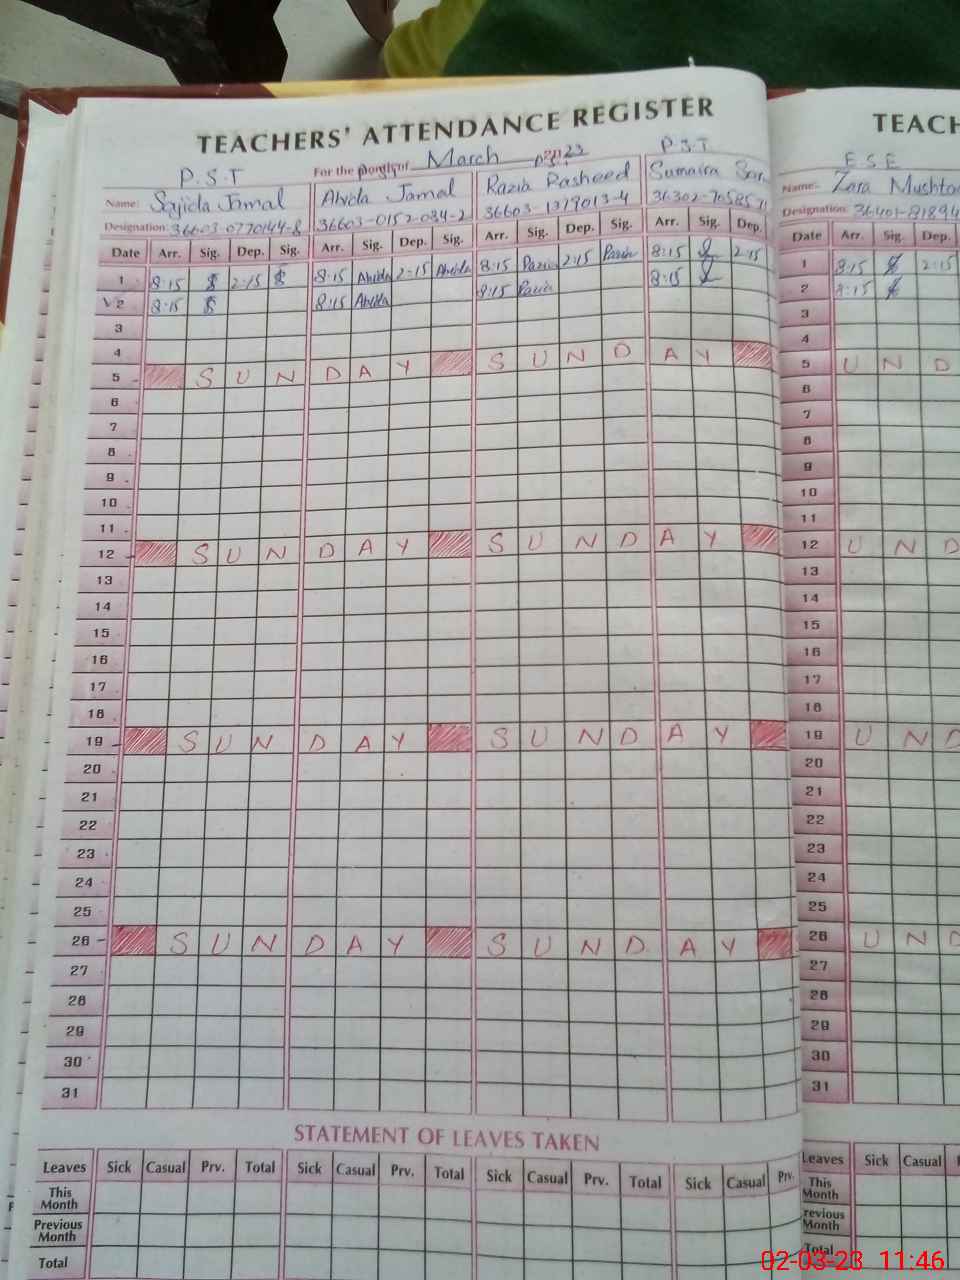 TEACHERS' ATTENDANCE REGISTER
P.S.T For the Month of March 2023 P.S.T
Name: Sajida Jamal Alvida Jamal Razia Rasheed Sumaira
Designation: 36603-0770144-8 36603-0152084-2 36603-1379013-4 36302-70585
Date Arr. Sig. Dep. Sig. Arr. Sig. Dep. Sig. Arr. Sig. Dep. Sig. Arr. Sig. Dep.
1 8:15 2:15 8:15 Alvida 2:15 Alvida 8:15 Razia 2:15 Razia 8:15 2:15
2 8:15 8:15 Alvida 8:15 Razia 8:15
3
4
5 SUNDAY SUNDAY
6
7
8
9
10
11
12 SUNDAY SUNDAY
13
14
15
16
17
18
19 SUNDAY SUNDAY
20
21
22
23
24
25
26 SUNDAY SUNDAY
27
28
29
30
31
STATEMENT OF LEAVES TAKEN
Leaves Sick Casual Prv. Total Sick Casual Prv. Total Sick Casual Prv. Total Sick Casual Prv.
This Month
Previous Month
Total
TEACH
E.S.E
Name: Zara Mushta
Designation: 36401-81894
Date Arr. Sig. Dep.
1 8:15 2:15
2 8:15
3
4
5 UND
6
7
8
9
10
11
12 UND
13
14
15
16
17
18
19 UND
20
21
22
23
24
25
26 UND
27
28
29
30
31
Leaves Sick Casual
This Month
revious Month
Total
02-03-23 11:46